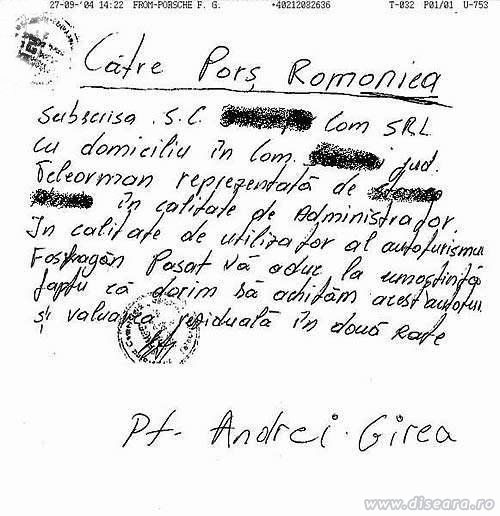 27-09-'04 14:22 FROM-PORSCHE F. G. +40212082636 T-032 P01/01 U-753
Către Porș Romoniea
Subscrisa S.C. Com SRL
cu domiciliu în Com. jud.
Teleorman reprezentată de
în calitate de Administrador.
In calitate de utilizator al autoturismu
Fosfragăn Pasat Vă aduc la umoștință
faptu că dorim să achităm acest autotur
și valuarea reziduală în două Rate
Pt. Andrei Girea
www.diseara.ro